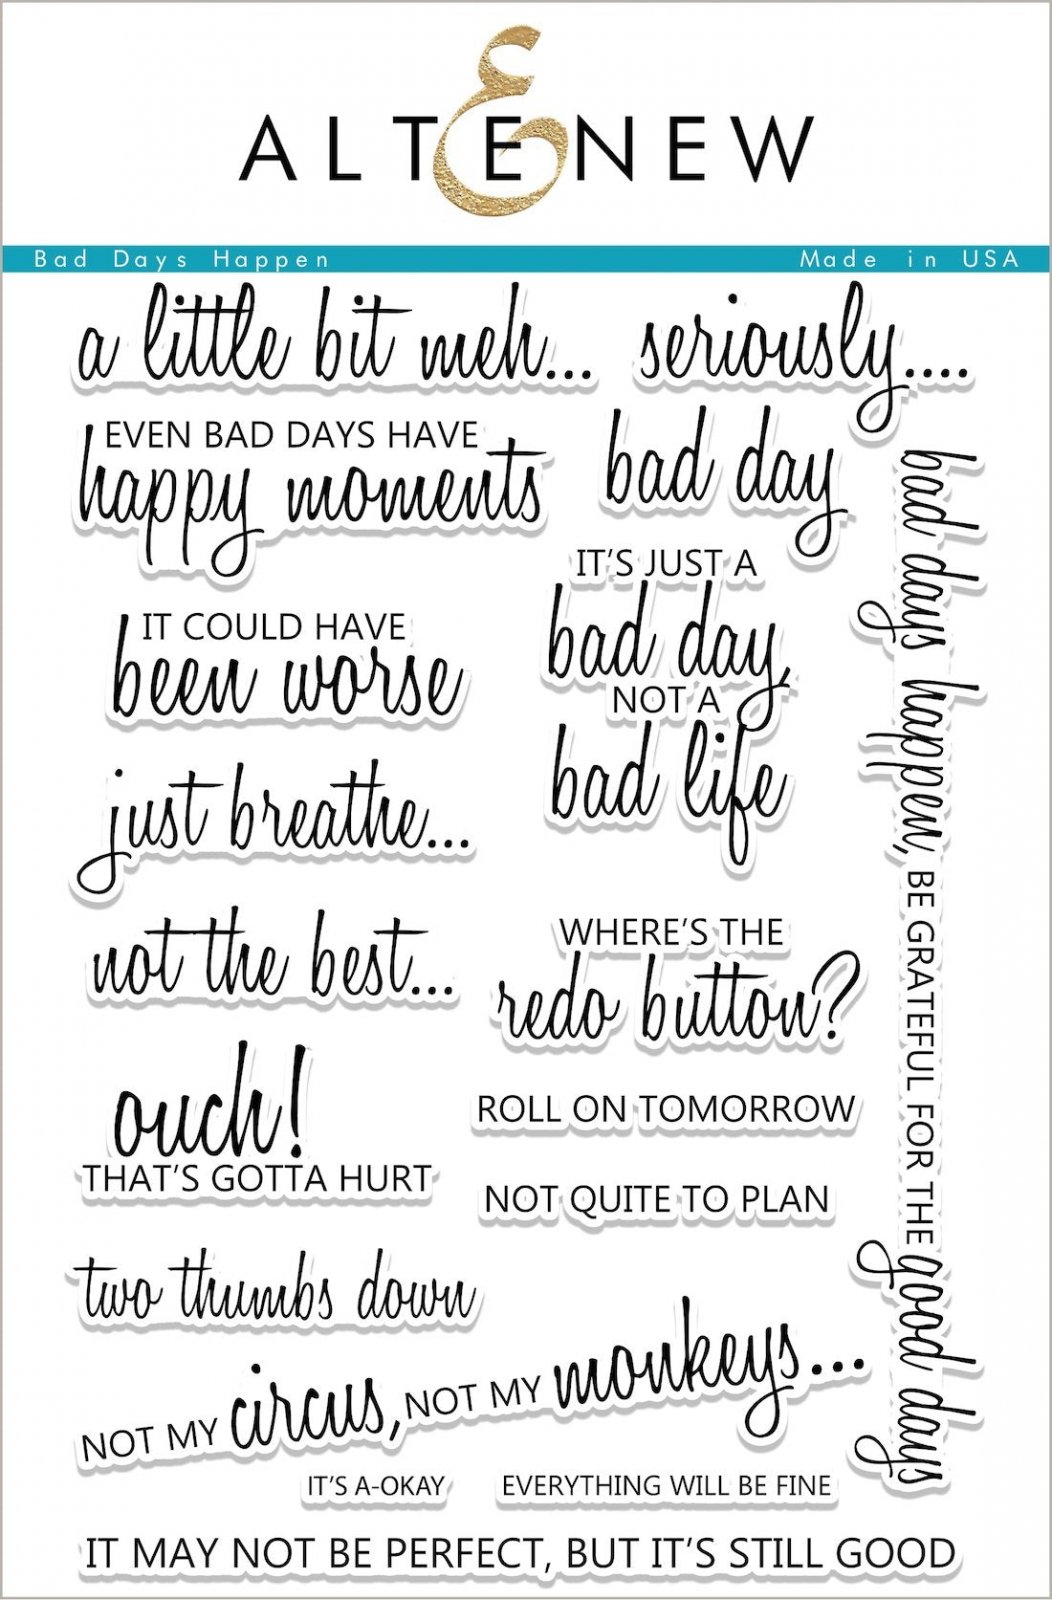 ALTENEW
Bad Days Happen
Made in USA
a little bit meh...
seriously....
EVEN BAD DAYS HAVE
happy moments
bad day
IT'S JUST A
bad day,
NOT A
bad life
IT COULD HAVE
been worse
just breathe...
not the best...
WHERE'S THE
redo button?
ouch!
THAT'S GOTTA HURT
ROLL ON TOMORROW
NOT QUITE TO PLAN
two thumbs down
NOT MY circus, NOT MY monkeys...
IT'S A-OKAY
EVERYTHING WILL BE FINE
IT MAY NOT BE PERFECT, BUT IT'S STILL GOOD
bad days happen, BE GRATEFUL FOR THE good days